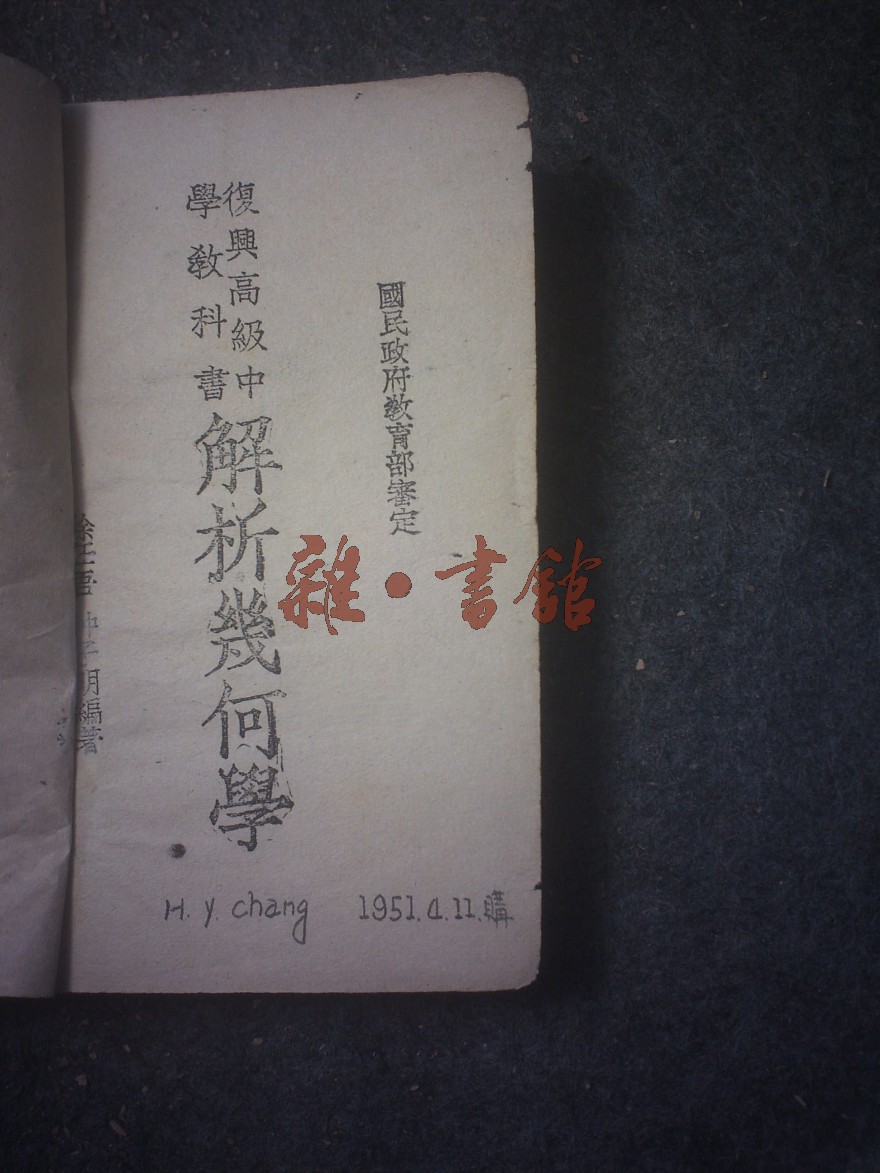 國民政府教育部審定
復興高級中
學教科書
解析幾何學
編著
H. y. chang 1951.4.11.購
雜·書館